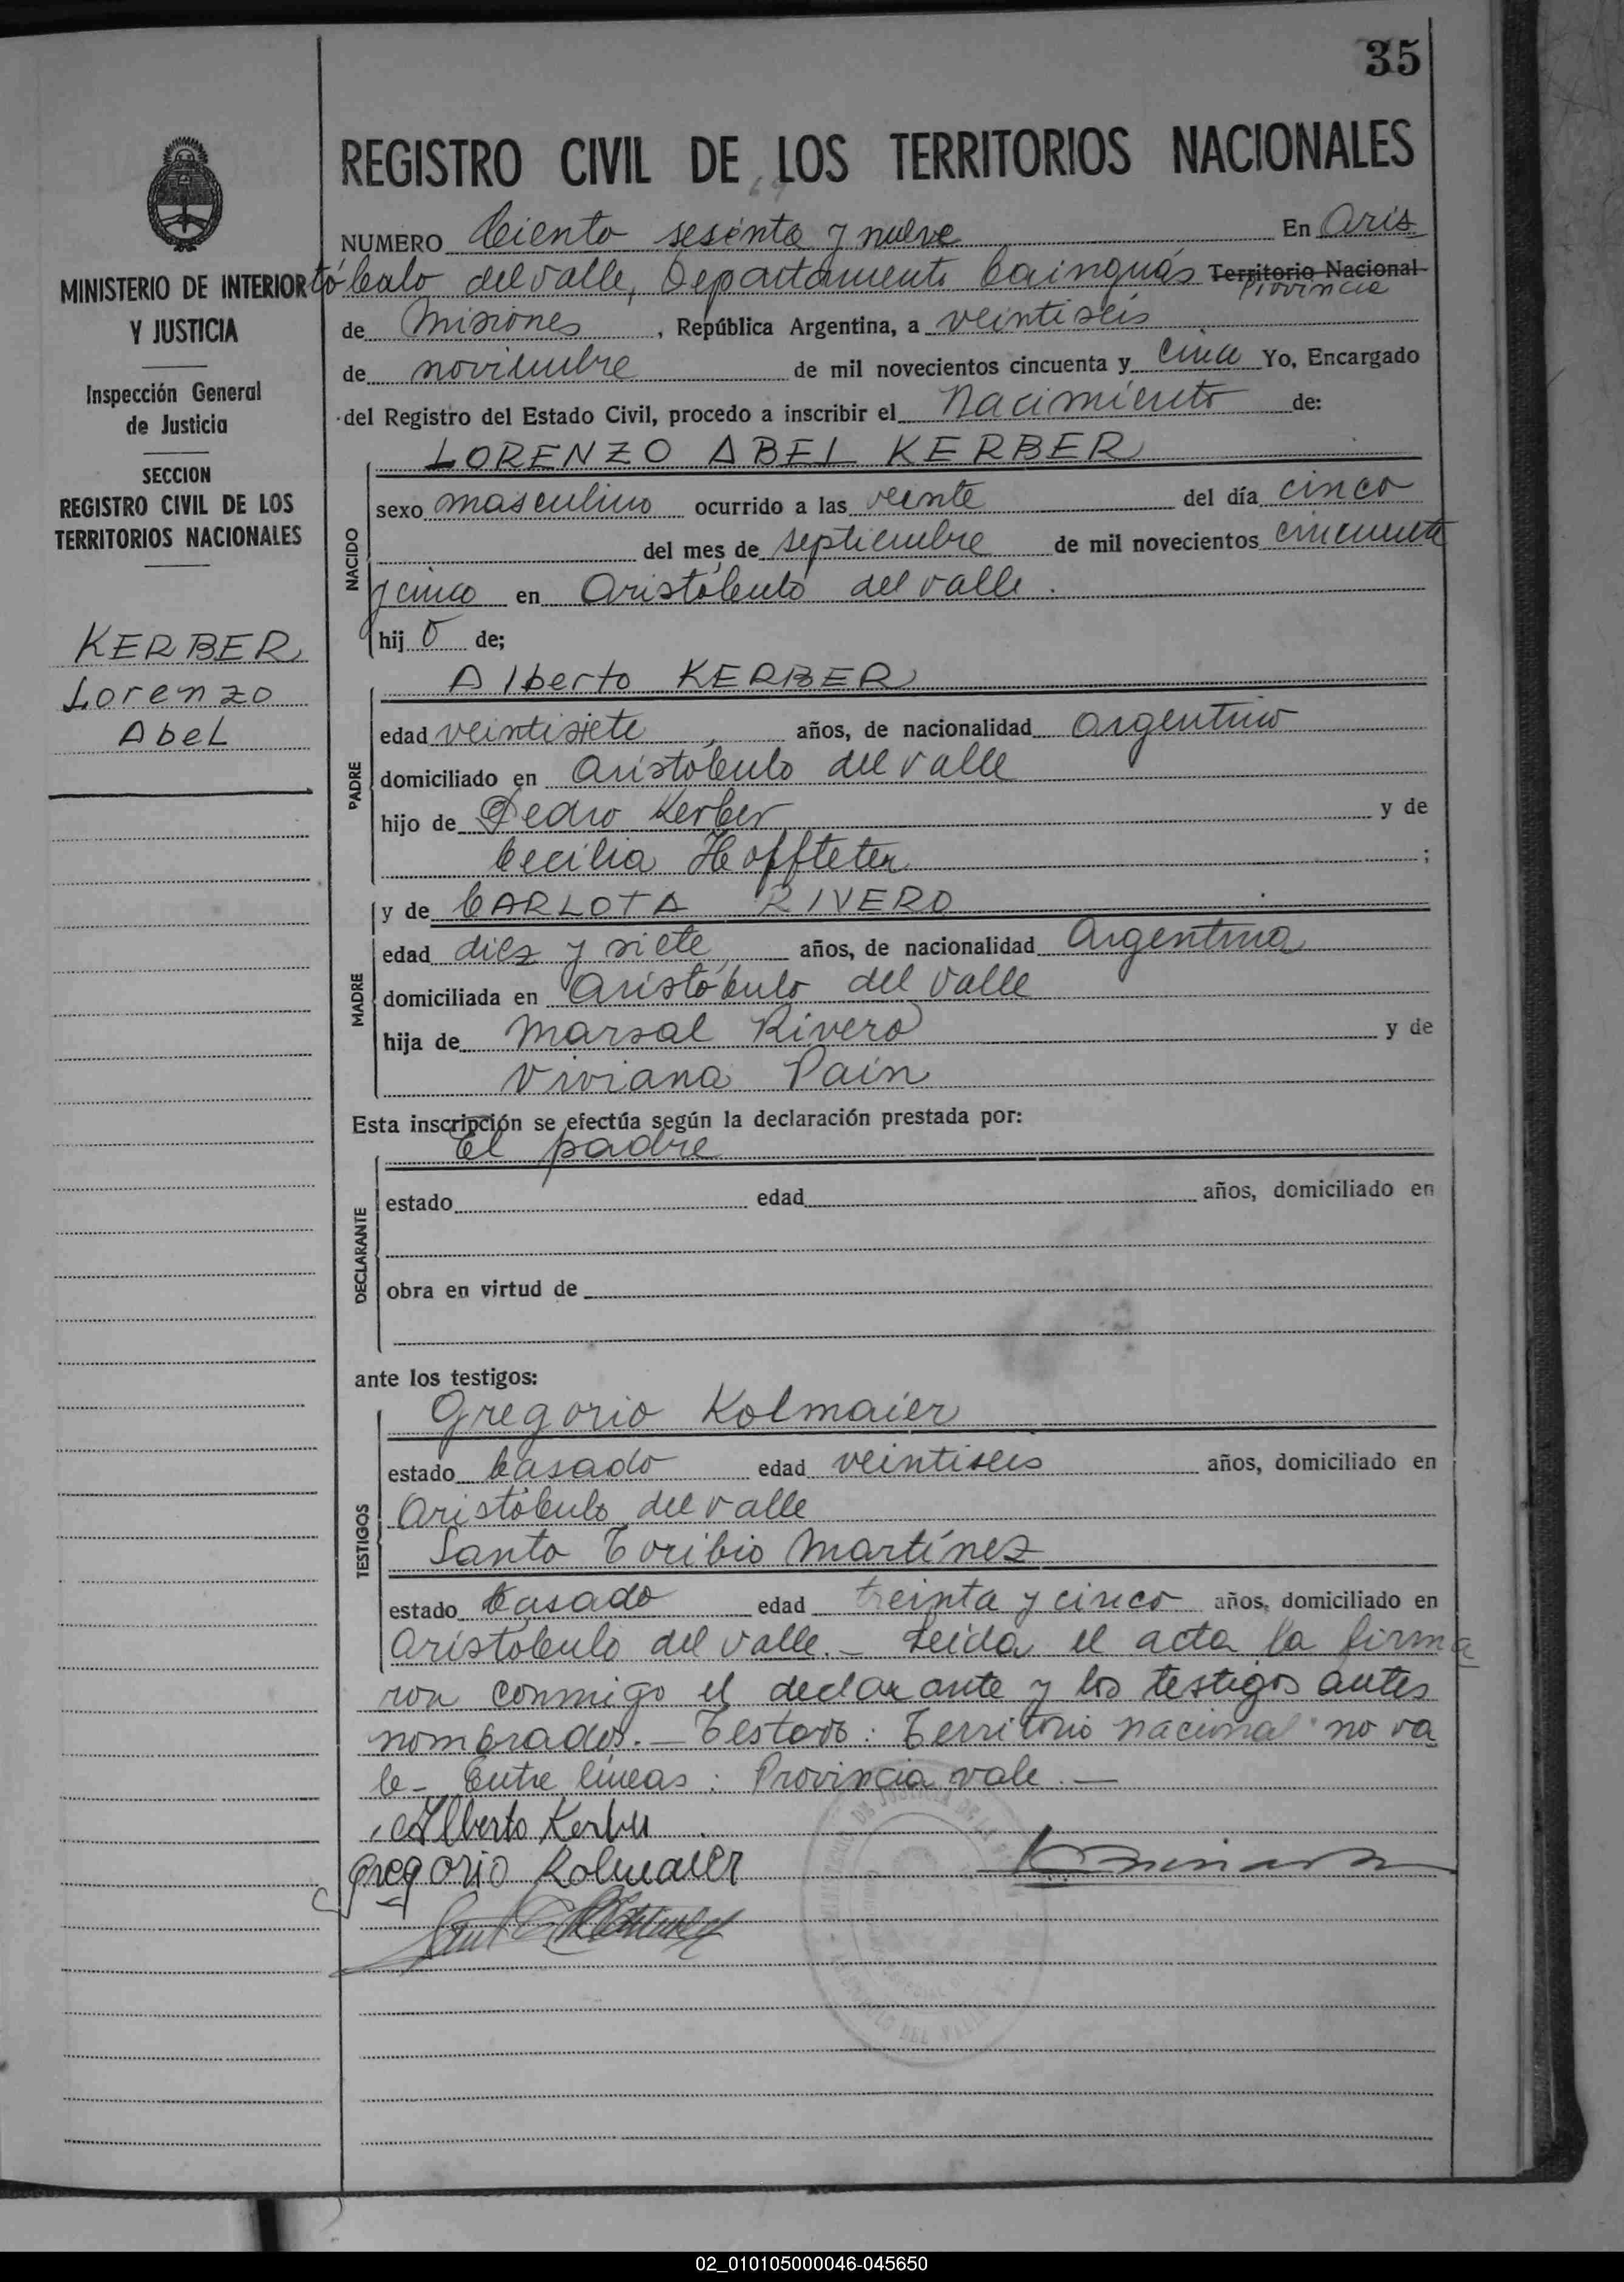 35
REGISTRO CIVIL DE LOS TERRITORIOS NACIONALES
69
NUMERO Ciento sesenta y nueve En Aris
tóbulo del valle, Departamento Cainguás Territorio Nacional
Provincia
de Misiones, República Argentina, a veintiseis
de noviembre de mil novecientos cincuenta y cinco Yo, Encargado
del Registro del Estado Civil, procedo a inscribir el Nacimiento de:
MINISTERIO DE INTERIOR
Y JUSTICIA
Inspección General
de Justicia
SECCION
REGISTRO CIVIL DE LOS
TERRITORIOS NACIONALES
KERBER
Lorenzo
Abel
NACIDO
LORENZO ABEL KERBER
sexo masculino ocurrido a las veinte del día cinco
del mes de septiembre de mil novecientos cincuenta
y cinco en Aristóbulo del valle.
hijo de;
PADRE
Alberto KERBER
edad veintisiete, años, de nacionalidad argentino
domiciliado en Aristóbulo del valle
hijo de Pedro Kerber y de
Cecilia Hoffteter;
MADRE
y de CARLOTA RIVERO
edad diez y siete, años, de nacionalidad Argentina
domiciliada en Aristóbulo del Valle
hija de Marsal Rivero y de
Viviana Pain
Esta inscripción se efectúa según la declaración prestada por:
DECLARANTE
El padre
estado edad años, domiciliado en
obra en virtud de
ante los testigos:
TESTIGOS
Gregorio Kolmaier
estado casado edad veintiseis años, domiciliado en
Aristóbulo del valle
Santo Toribio Martínez
estado casado edad treinta y cinco años, domiciliado en
Aristóbulo del valle.- Leida el acta la firma
ron conmigo el declarante y los testigos antes
nombrados.- Testado: Territorio nacional no va
le- Entre líneas: Provincia vale.-
Alberto Kerber
Gregorio Kolmaier
02_010105000046-045650